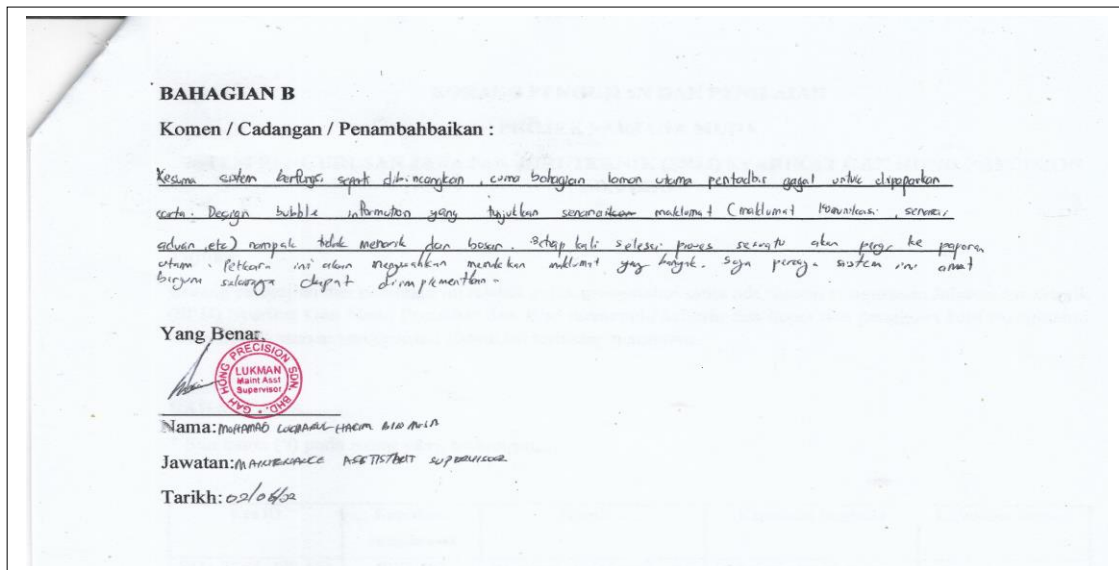 BAHAGIAN B
Komen / Cadangan / Penambahbaikan :
Kesuma sistem berfungsi seperti dibincangkan, cuma bahagian laman utama pentadbir gagal untuk dipaparkan
carta. Design bubble information yang tunjukkan senarai maklumat (maklumat komunikasi, senarai
aduan, etc) nampak tidak menarik dan bosan. Setiap kali selesai proses sesuatu akan pergi ke paparan
utama. Perkara ini akan menyusahkan masukkan maklumat yang banyak. Saya percaya sistem ini amat
berguna sekiranya dapat diimplementkan.
Yang Benar,
GAH HONG PRECISION SDN. BHD.
LUKMAN
Maint Asst
Supervisor
Nama: MOHAMAD HAKIM BIN
Jawatan: MAINTENANCE ASSISTANT SUPERVISOR
Tarikh: 02/06/22